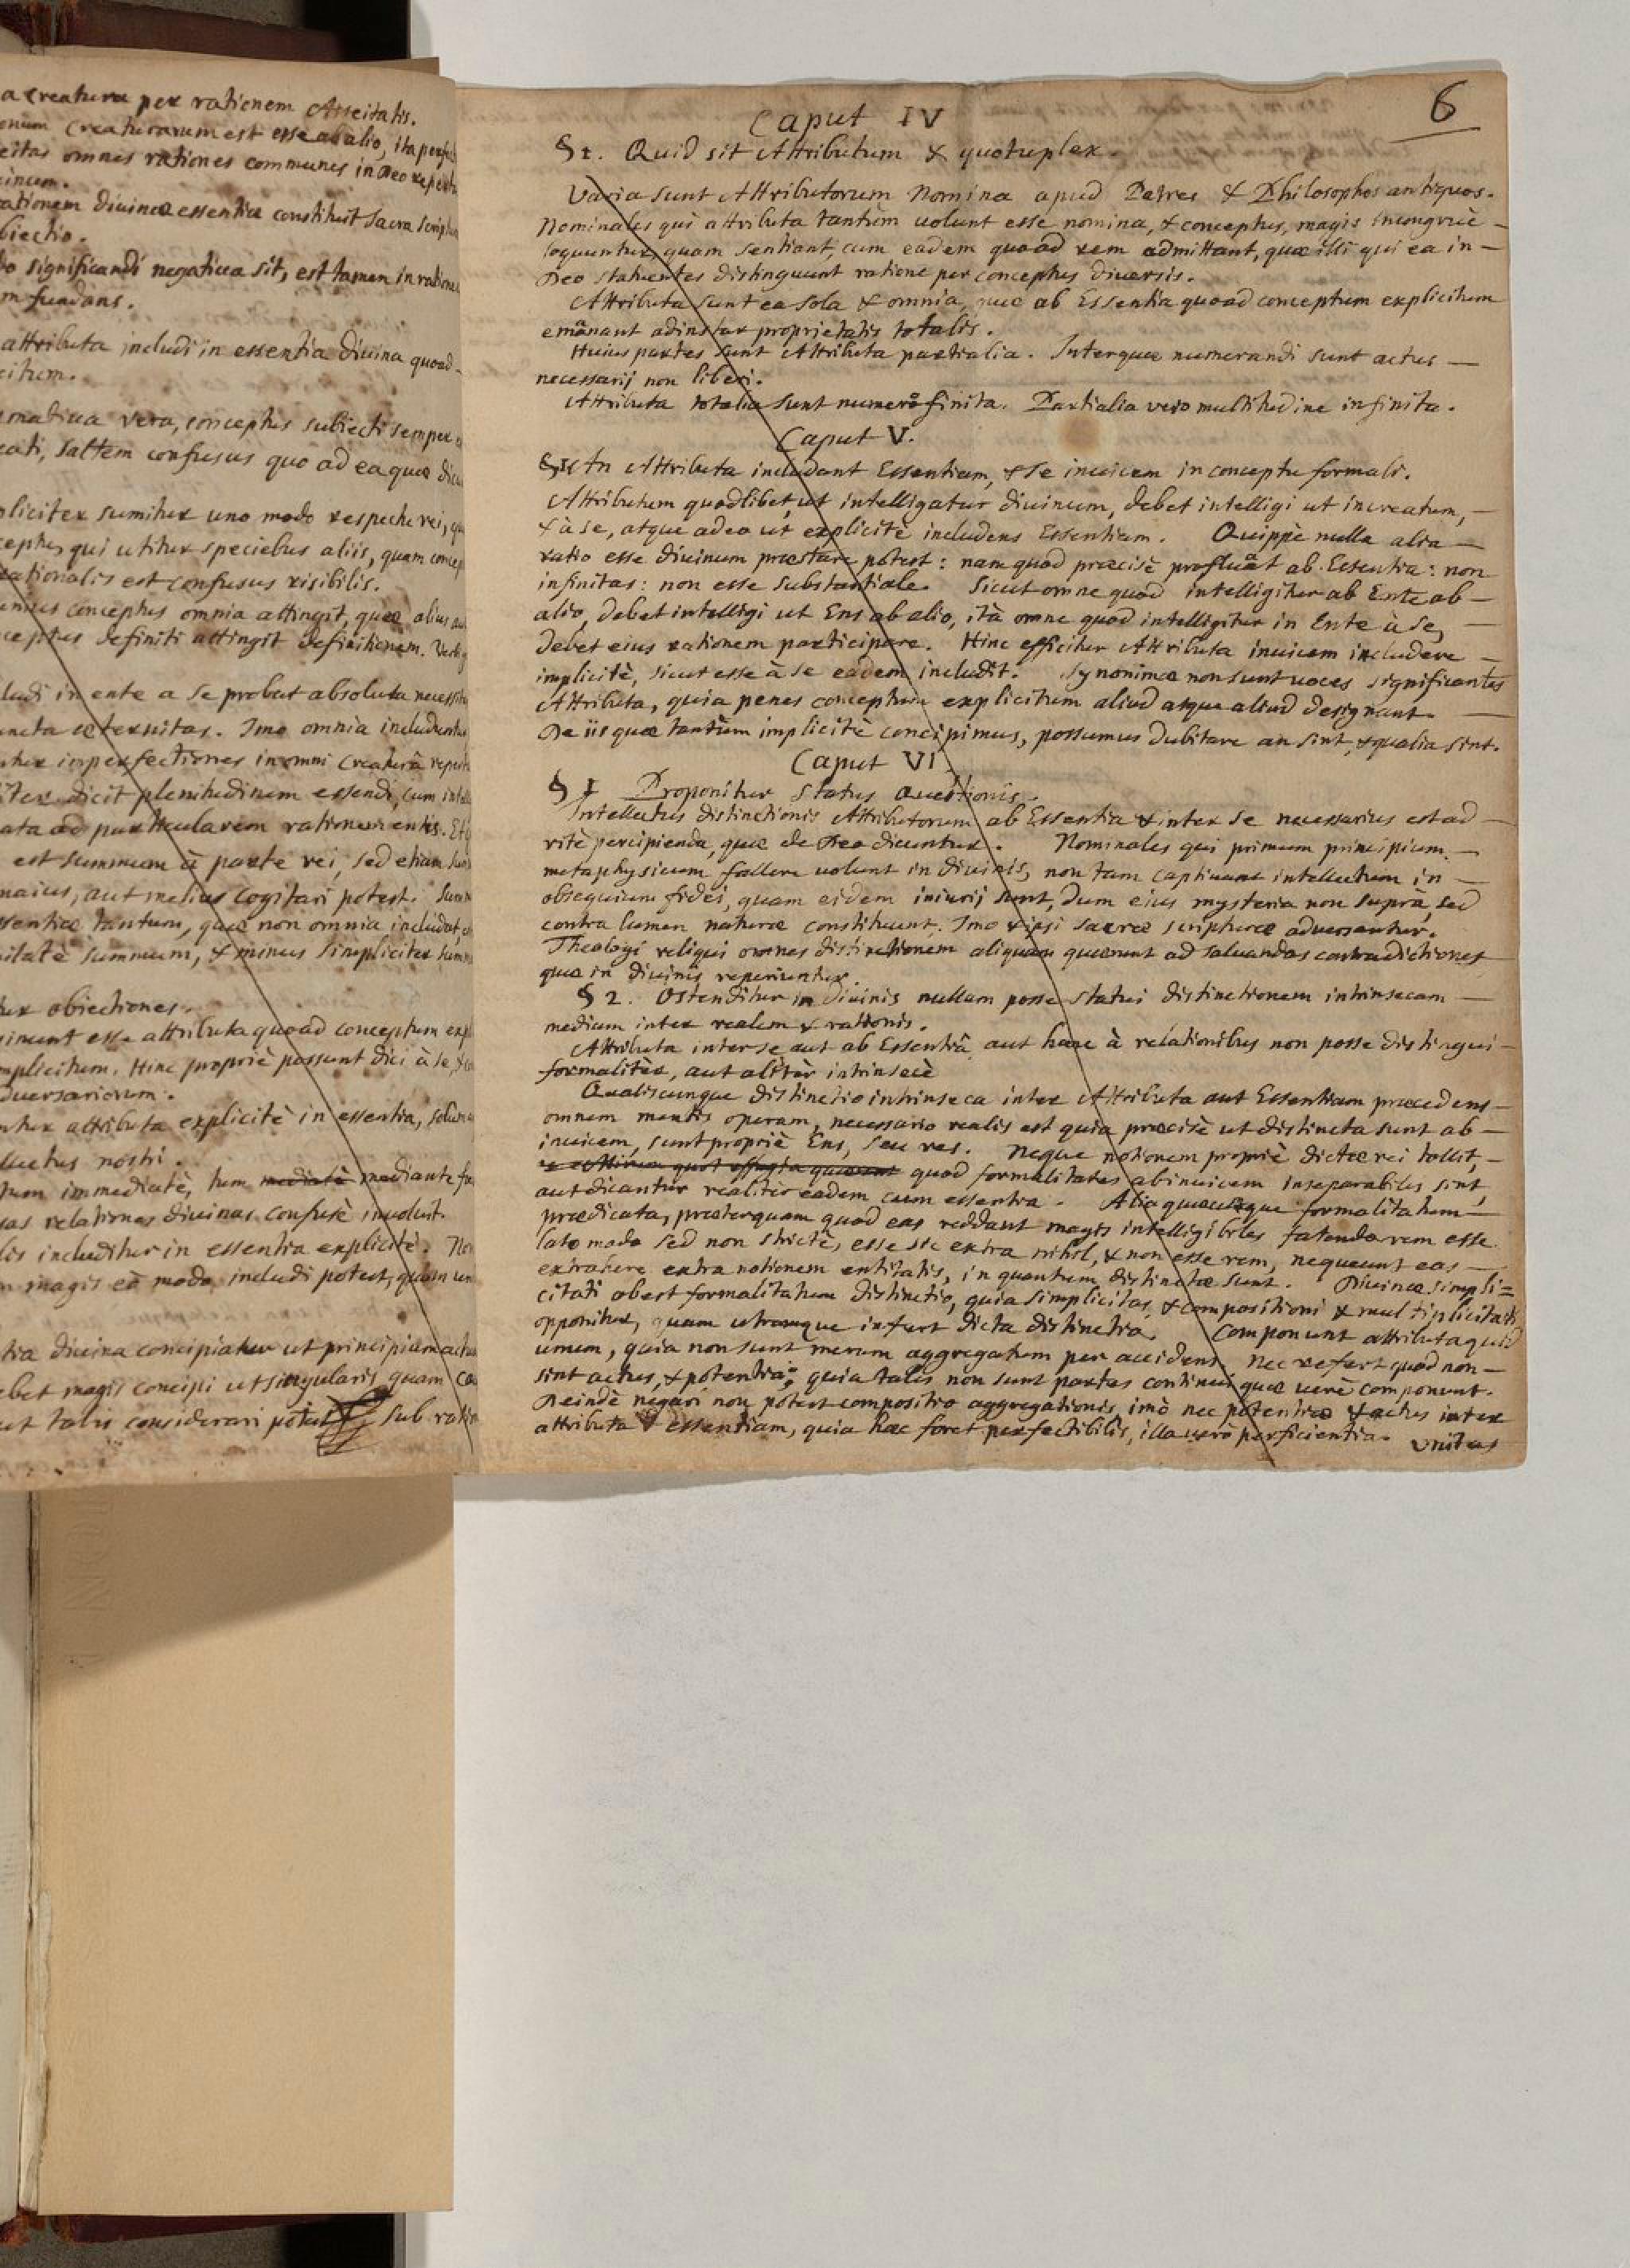 a creaturæ per rationem Asseitatis.
onum creaturarum est esse ab alio, ita perfec
eitas omnes rationes communes in Deo reperta
cinem.
rationem divinæ essentiæ constituit sacra scriptu
biectio.
do significandi negatiua sit, est tamen in ratione
m fundans.
attributa includi in essentia diuina quoad
citum.
rmatiua vera, conceptus subiecti semper
cati, saltem confusus quo ad ea quæ dicu
pliciter sumitur uno modo respectu rei, qu
ceptus, qui utitur speciebus aliis, quam concep
rationalis est confusus risibilis.
unius conceptus omnia attingit, quæ alius au
ceptus definiti attingit definitionem.
ludi in ente a se probat absoluta necessita
uncta æternitas. Imo omnia includuntur
ntur inperfectiones in omni creaturâ reperta
iter dicit plenitudinem essendi, cum
ata ad particularem rationem entis.
est summum à parte rei, sed etiam
maius, aut melius cogitari potest. Summ
ssentiæ tantum, quæ non omnia includat,
summum, & minus simpliciter summ
tur obiectiones.
esse attributa quoad conceptum expl
mplicitum. Hinc propriè possunt dici à se,
duersariorum.
ntur attributa explicitè in essentia,
llectus nostri.
tum immediatè, tum mediatè mediante
sas relationes diuinas confusè inuoluit.
lis includitur in essentia explicitè. Non
magis eo modo includi potest, quam
tia diuina concipiatur ut principium actu
ebet magis concipi ut singularis quam
ut talis considerari potest, sub ratio
6
Caput IV
§ 1. Quid sit Attributum & quotuplex.
Varia sunt Attributorum Nomina apud Patres & Philosophos antiquos.
Nominales qui attributa tantùm uolunt esse nomina, & conceptus, magis incongruè -
loquuntur, quam sentiant, cum eadem quoad rem admittant, quæ illi qui ea in -
Deo statuentes distinguunt ratione per conceptus diuersis.
Attributa sunt ea sola & omnia quæ ab Essentia quoad conceptum explicitum
emanant ad instar proprietatis totalis.
Huius partes sunt Attributa partialia. Inter quæ numerandi sunt actus —
necessarij non liberi.
Attributa totalia sunt numero finita. Partialia vero multitudine infinita.
Caput V.
§ 1 An Attributa includant Essentiam, & se inuicem in conceptu formali.
Attributum quodlibet, ut intelligatur diuinum, debet intelligi ut increatum, -
& à se, atque adeo ut explicitè includens Essentiam. Quippè nulla alia —
ratio esse diuinum præstare potest: nam quod præcisè profluat ab Essentia: non
infinitas: non esse substantiale. Sicut omne quod intelligitur ab Ente ab -
alio, debet intelligi ut Ens ab alio, ità omne quod intelligitur in Ente à se, —
debet eius rationem participare. Hinc efficitur Attributa inuicem includere —
implicitè, sicut esse à se eadem includit. Synonimæ non sunt uoces significantes
Attributa, quia penes conceptum explicitum aliud atque aliud designant. —
De iis quæ tantùm implicitè concipimus, possumus dubitare an sint, & qualia sint.
Caput VI
§ 1 Proponitur status Quæstionis.
Intellectus distinctionis Attributorum ab Essentia & inter se necessarius est ad —
ritè percipienda, quæ de Deo dicuntur. Nominales qui primum principium —
metaphysicum fallere uolunt in diuinis, non tam captiuant intellectum in —
obsequium fidei, quam eidem iniurij sunt, dum eius mysteria non suprà, sed
contra lumen naturæ constituunt. Imo & ipsi sacræ scripturæ aduersantur.
Theologi reliqui omnes distinctionem aliquam quærunt ad saluandas contradictiones
quæ in diuinis reperiuntur.
§ 2. Ostenditur in diuinis nullam posse statui distinctionem intrinsecam —
mediam inter realem & rationis.
Attributa inter se aut ab Essentiâ, aut hanc à relationibus non posse distingui -
formalitèr, aut alitèr intrinsecè
Qualiscunque distinctio intrinseca inter Attributa aut Essentiam præcedens -
omnem mentis operam, necessario realis est quia præcisè ut distincta sunt ab -
inuicem, sunt propriè Ens, seu res. Neque notionem propriè dictæ rei tollit, -
quot effugia quærant quod formalitates ab inuicem inseparabiles sint,
aut dicantur realiter eadem cum essentia. Alia quæcunque formalitatum -
prædicata, præterquam quod eas reddant magis intelligibiles fatendo rem esse
lato modo sed non strictè, esse sic extra nihil, & non esse rem, nequeunt eas —
extrahere extra notionem entitatis, in quantum distinctæ sunt. Diuinæ simpli=
citati obest formalitatum distinctio, quia simplicitas & compositioni & multiplicitati
opponitur, quam utramque infert dicta distinctio. Componunt attributa quid
unum, quia non sunt merum aggregatum per accidens. Nec refert quod non -
sint actus, & potentia; quia talis non sunt partes continui quæ uerè componunt.
Deindè negari non potest compositio aggregationis, imò nec potentiæ & actus inter
attributa & essentiam, quia hæc foret perfectibilis, illa uerò perficientia. Vnitas